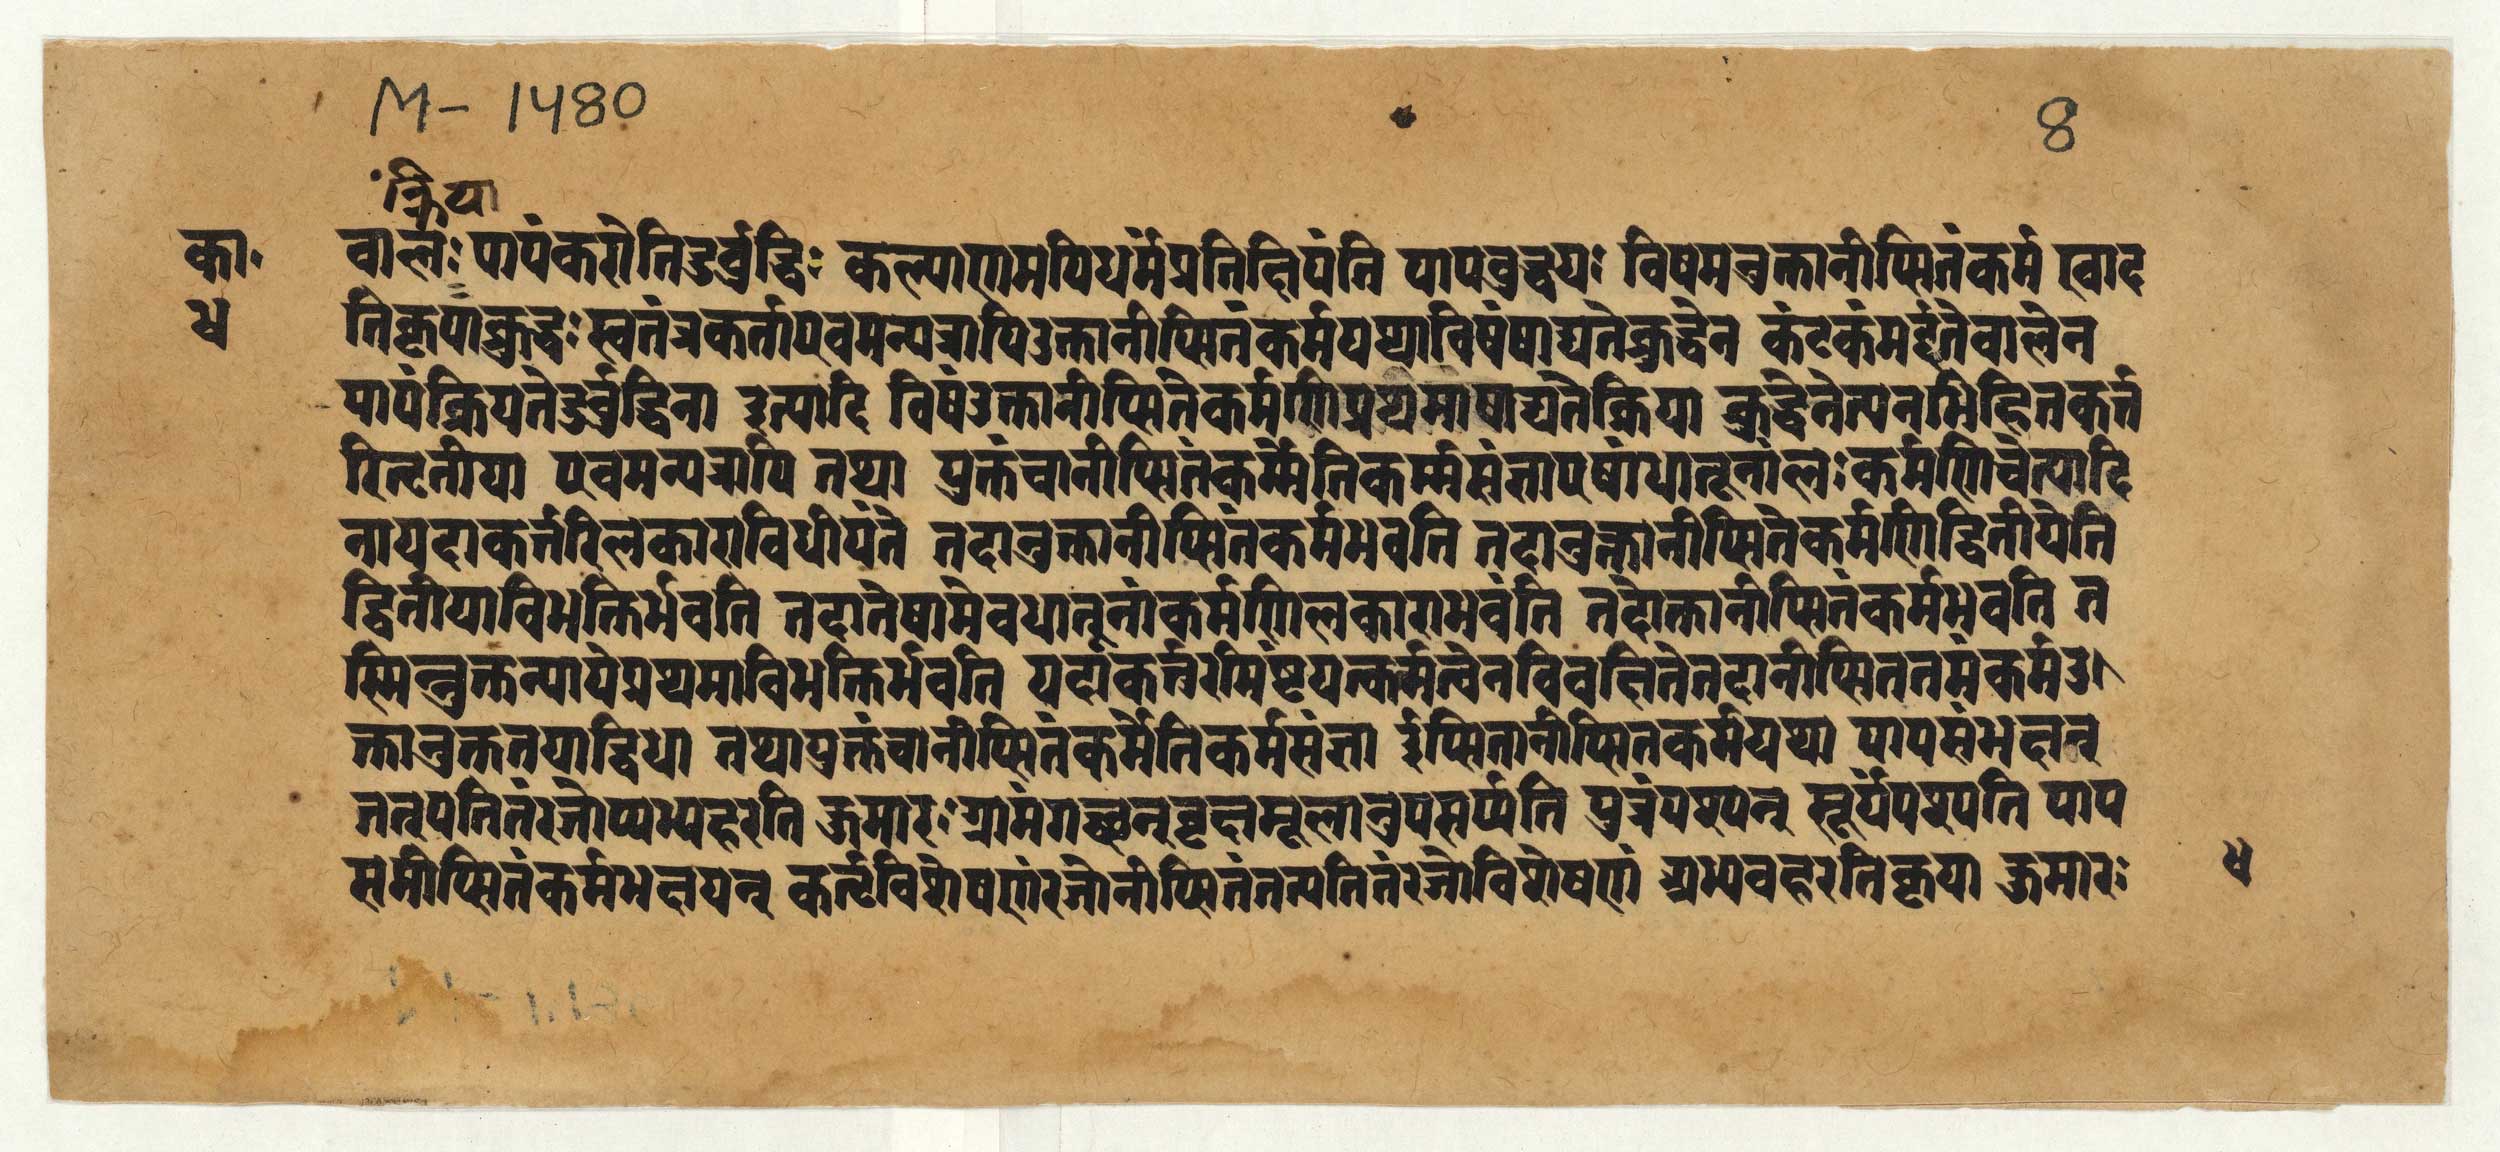 M- 1480
8
क्रिया
का॰ वालः पापंकरोतिदुर्वुद्धिः कल्याणमपिधर्मंप्रतिक्षिपंति पापवुद्धयः विषमनुक्तानीप्सितंकर्म खाद
४ तिकृपाक्रुद्धः स्वतंत्रकर्ताएवमन्यत्रापिउक्तानीप्सितंकर्मयथाविषंषाद्यतेक्रुद्धेन कंटकंमर्द्द्यतेवालेन
पापंक्रियतेदुर्वुद्धिना इत्यादि विषंउक्तानीप्सितेकर्मणिप्रथमाषाद्यतेक्रिया क्रुद्धेनेत्यनभिहितकर्त्त
रितृतीया एवमन्यत्रापि तथा युक्तंचानीप्सितंकर्मेतिकर्म्मसंज्ञाएषांधातूनांलः कर्मणिचेत्यादि
नायदाकर्त्तरिलकाराविधीयंते तदानुक्तानीप्सितंकर्मभवति तदानुक्तानीप्सितेकर्मणिद्वितीयेति
द्वितीयाविभक्तिर्भवति तदातेषामेवधातूनांकर्मणिलकाराभवंति तदोक्तानीप्सितंकर्मभवति त
स्मिन्नुक्तन्यायेप्रथमाविभक्तिर्भवति यदाकर्त्तुरमिष्टयत्कर्मत्वेनविवक्षितेतदानीप्सिततमंकर्मउ।
क्तानुक्ततयाद्विधा तथायुक्तंचानीप्सितंकर्मेतिकर्मसंज्ञा ईप्सितानीप्सितकर्मयथा पायसंभक्षन्
तत्पतितंरजोप्यभ्यहरति कुमारः ग्रामंगच्छन्वृक्षमूलानुपसर्प्पति पुत्रंपश्यन् सूर्यंपश्यति पाय
समीप्सितंकर्मभक्षयन् कर्तृविशेषणंरजोनीप्सितंतत्पतितंरजोविशेषणं अभ्यवहरतिकृया कुमारः
४